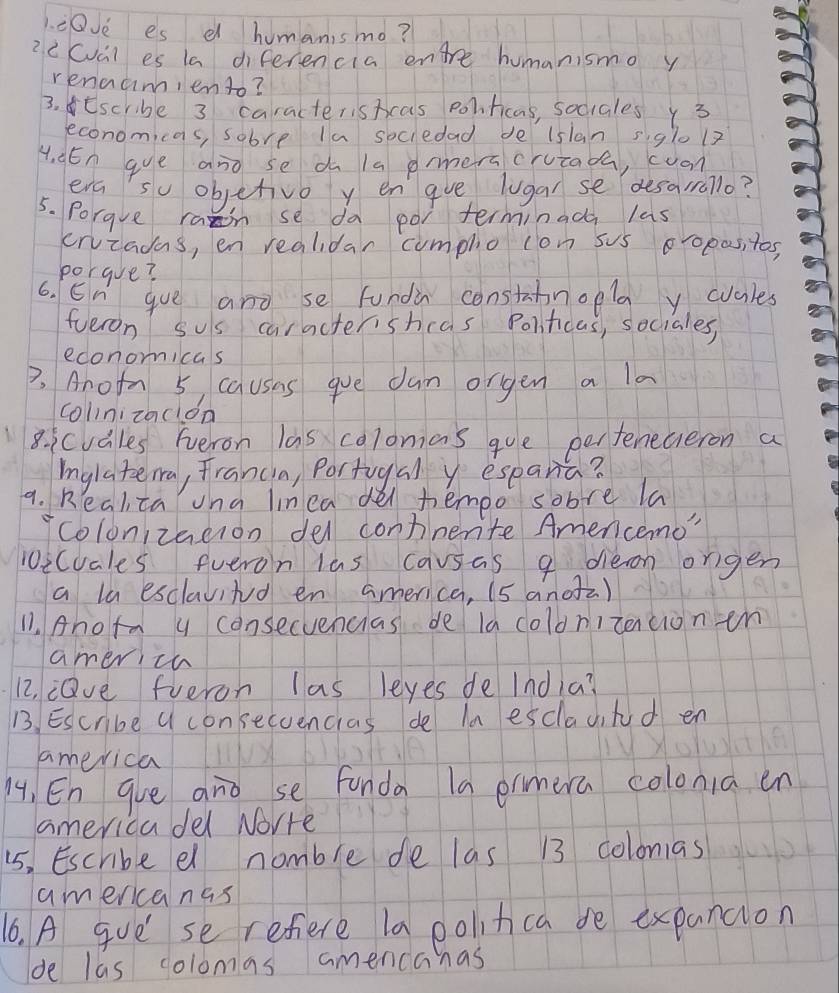 1.¿Qué es el humanismo?
2¿Cuál es la diferencia entre humanismo y
renacimiento?
3. Escribe 3 caracteristicas politicas, sociales y 3
economicas, sobre la sociedad de islan siglo 17
4.¿En que año se da la primera cruzada, cual
era su objetivo y en que lugar se desarrollo?
5. Porque razón se da por terminada las
cruzadas, en realidar cumplio con sus propositos,
porque?
6. En que ano se funda constatinopla y cuales
fueron sus caracteristicas Politicas, sociales,
economicas
7. Anota 5, causas que dan origen a la
colinización
8.¿Cuáles fueron las colonias que pertenecieron a
Inglaterra, Francia, Portugal y españa?
9. Realiza una linea del tiempo sobre la
"Colonización del continente Americano"
10¿Cuales fueron las causas q dieron origen
a la esclavitud en america, (5 anota)
11. Anota 4 consecuencias de la colonización en
america
12, ¿Que fueron las leyes de India?
13. Escribe 4 consecuencias de la esclavitud en
america
14, En que año se funda la primera colonia en
america del Norte
15. Escribe el nombre de las 13 colonias
americanas
16. A qué se refiere la politica de expancion
de las colonias americanas